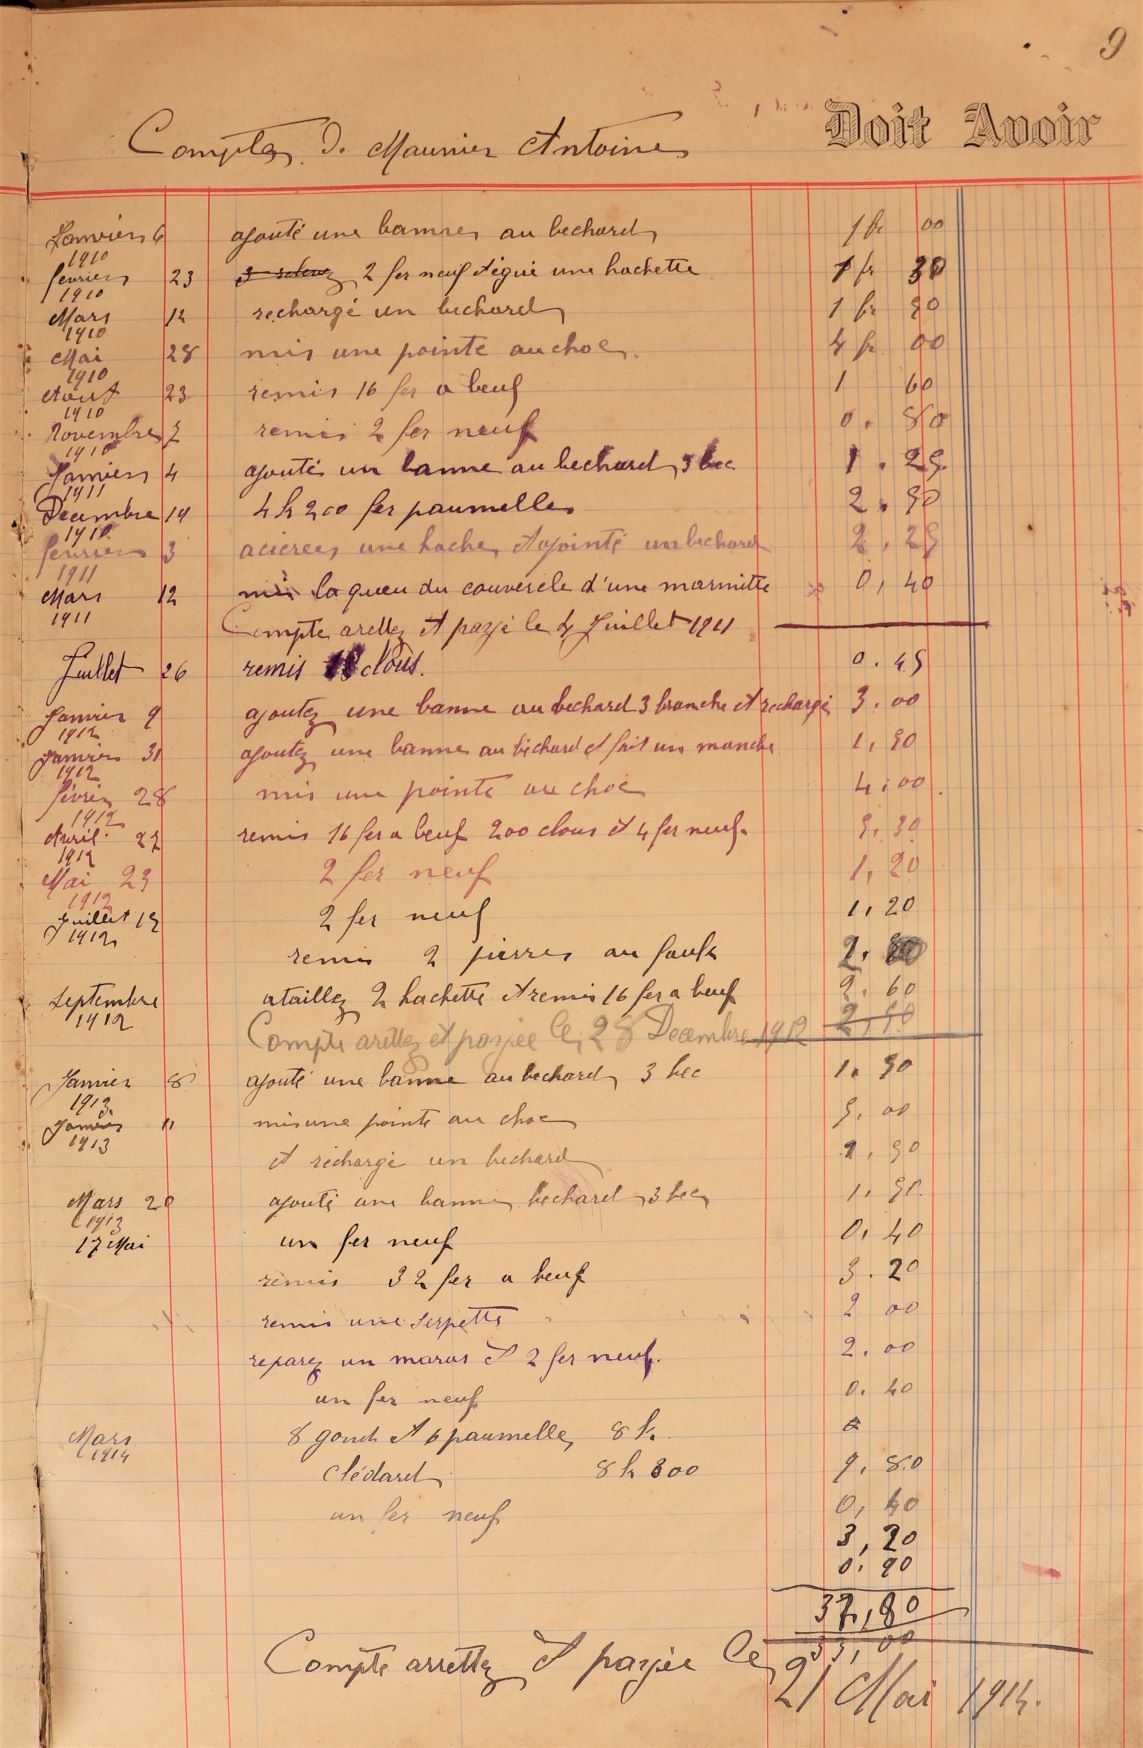 9
Doit Avoir
Comptes De Maunier Antoine
Janvier 6 ajouté une banne au bechard 1 fr 00
1910
fevrier 23 2 fer neuf et égui une hachette 1 fr 30
1910
Mars 12 rechargé un bechard 1 fr 50
1910
Mai 28 mis une pointe au choc 4 fr 00
1910
Aout 23 remis 16 fer a beuf 1 60
1910
Novembre 7 remis 2 fer neuf 0. 80
1910
Janvier 4 ajouté un banne au bechard 3 bec 1. 25
1911
Decembre 14 4 k 200 fer paumelles 2. 50
1910
fevrier 3 acierer une hache et apointé un bechard 2, 25
1911
Mars 12 mis la queu du couvercle d'une marmitte 0, 40
1911
Compte aretter et payé le 4 Juillet 1911
Juillet 26 remis clous. 0. 45
Janvier 9 ajoutez une banne au bechard 3 branche et rechargé 3. 00
1912
Janvier 31 ajoutez une banne au bechard et fait un manche 1, 50
1912
févrie 28 mis une pointe au choc 4, 00
1912
Avril 27 remis 16 fer a beuf 200 clous et 4 fer neuf. 5. 30
1912
Mai 23 2 fer neuf 1, 20
1912
Juillet 15 2 fer neuf 1, 20
1912
remis 2 pierres au foulx 2.
Septembre ataillez 2 hachette et remis 16 fer a beuf 2. 60
1912
Compte arettez et payée le, 28 Decembre 1912 2, 50
Janvier 8 ajouté une banne au bechard 3 bec 1. 50
1913
Janvier 11 mis une pointe au choc 5. 00
1913
et rechargé un bechard 1, 50
Mars 20 ajouté une banne bechard 3 bec 1. 50
1913
17 Mai un fer neuf 0, 40
remis 32 fer a beuf 3. 20
remis une serpette 2 00
reparez un marus et 2 fer neuf. 2. 00
un fer neuf 0. 40
Mars 8 gond et 6 paumelle, 8 k.
1914
clédard 8 k 800 9. 80
un fer neuf 0, 40
3, 20
0. 90
37, 80
33, 00
Compte arrettez et payée Le, 21 Mai 1914.